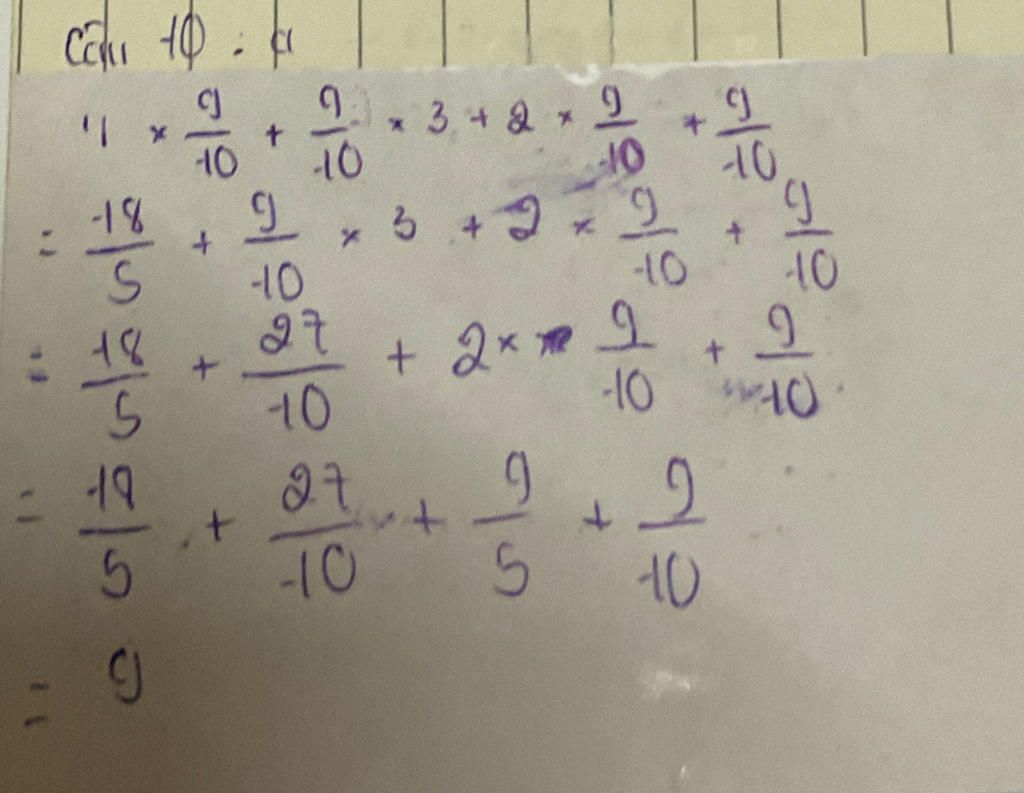 Câu 10 : a
4 × 9/10 + 9/10 × 3 + 2 × 9/10 + 9/10
= 18/5 + 9/10 × 3 + 2 × 9/10 + 9/10
= 18/5 + 27/10 + 2 × 9/10 + 9/10
= 18/5 + 27/10 + 9/5 + 9/10
= 9